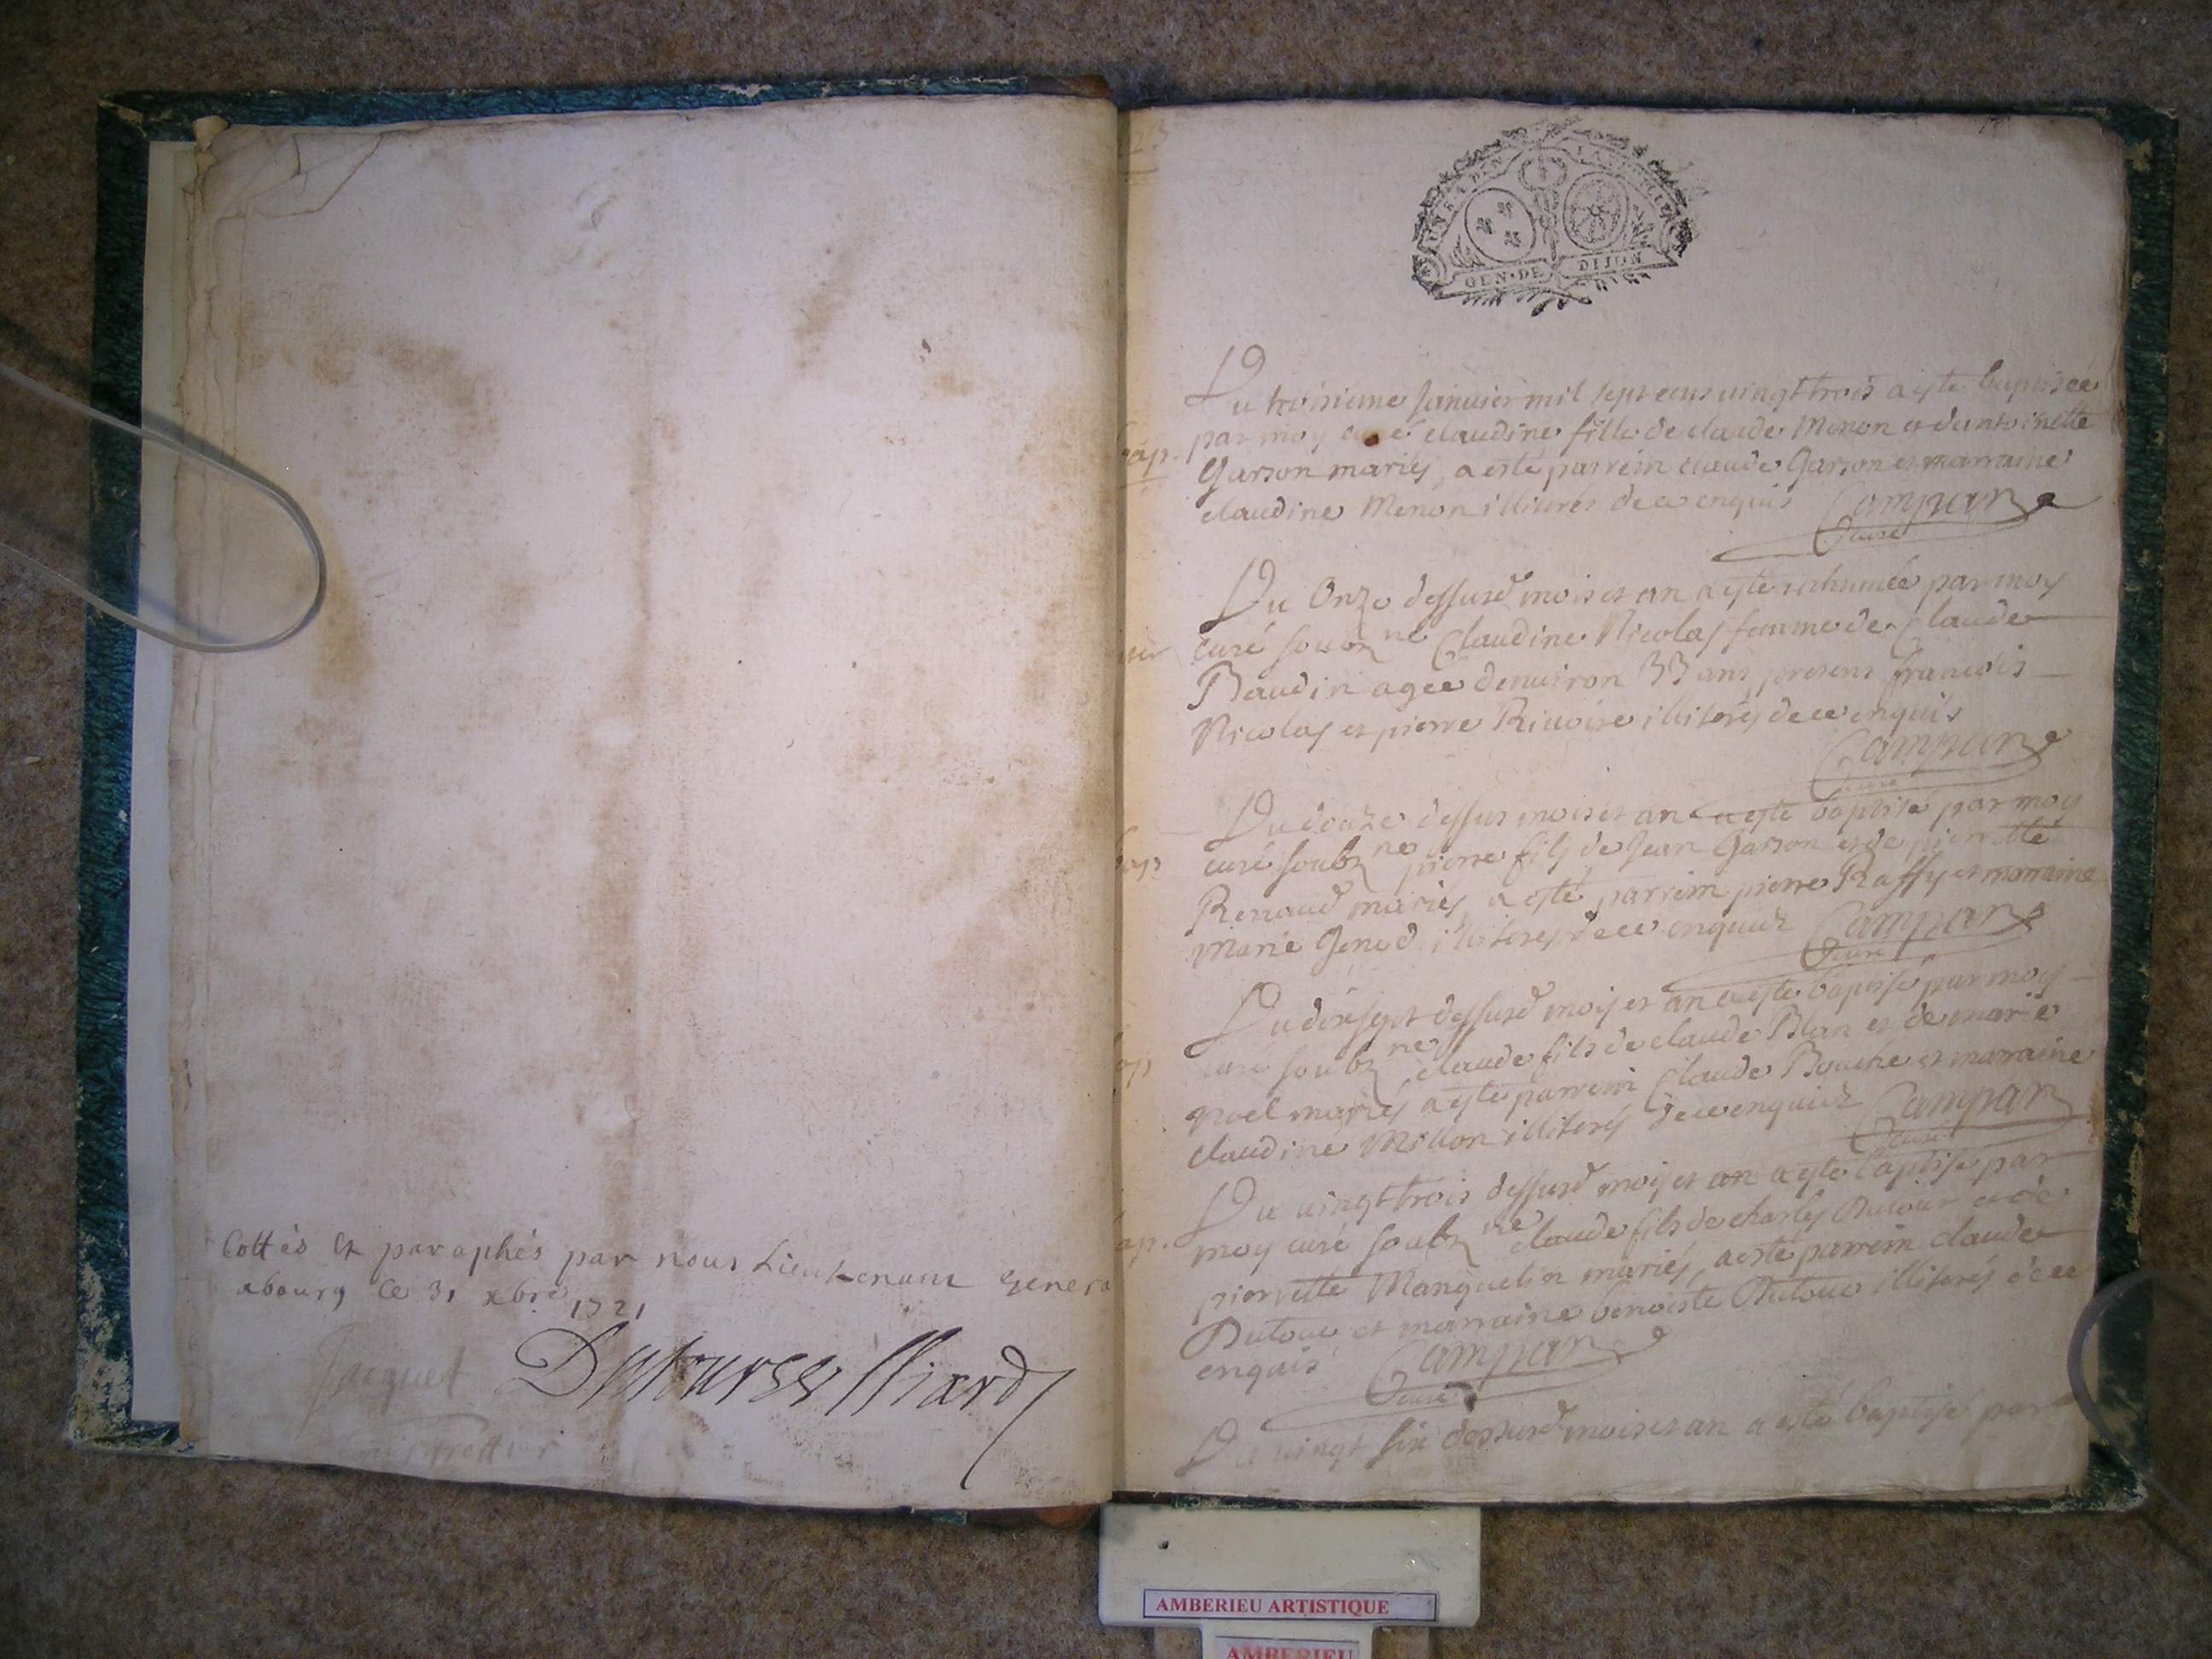 Cottés et paraphés par nous Lieutenant genera
xbourg ce 31 xbre 1721
Jacquet Dutour Vulliard
GEN. DE DIJON
Du troisieme Janvier mil sept cens vingt trois a esté baptisée
bap. par moy curé claudine fille de claude Menon et dantoinette
Garson mariés, a esté parrein claude Garson et marraine
claudine Menon illiterés de ce enquis Campan
Curé
Du Onze dessusd mois et an a esté inhumée par moy
curé soubz ne Claudine Nicolas femme de Claude
Baudin agée denviron 33 ans, presens françois
Nicolas et pierre Rivoire illiterés de ce enquis
Campan
curé
Du douze dessus mois et an a esté baptisé par moy
bap curé soubz ne pierre fils de Jean Garson et de pierrette
Renaud mariés, a esté parrein pierre Raffy et marraine
Marie Genod illiterés de ce enquis Campan
Curé
Du dixsept dessusd mois et an a esté baptisé par moy
ap curé soubz ne claude fils de claude Blan et de marie
Noel mariés a esté parrein Claude Bouche et marraine
claudine Millon illiterés de ce enquis Campan
Curé
Du vingt trois dessusd mois et an a esté baptisé par
ap. moy curé soubz ne claude fils de charles Dutour et de
pierrette Manguelin mariés, a esté parrein claude
Dutour et marraine benoiste Dutour illiterés de ce
enquis Campan
Curé
Du vingt six dessusd mois et an a esté baptisé par
AMBERIEU ARTISTIQUE
AMBERIEU